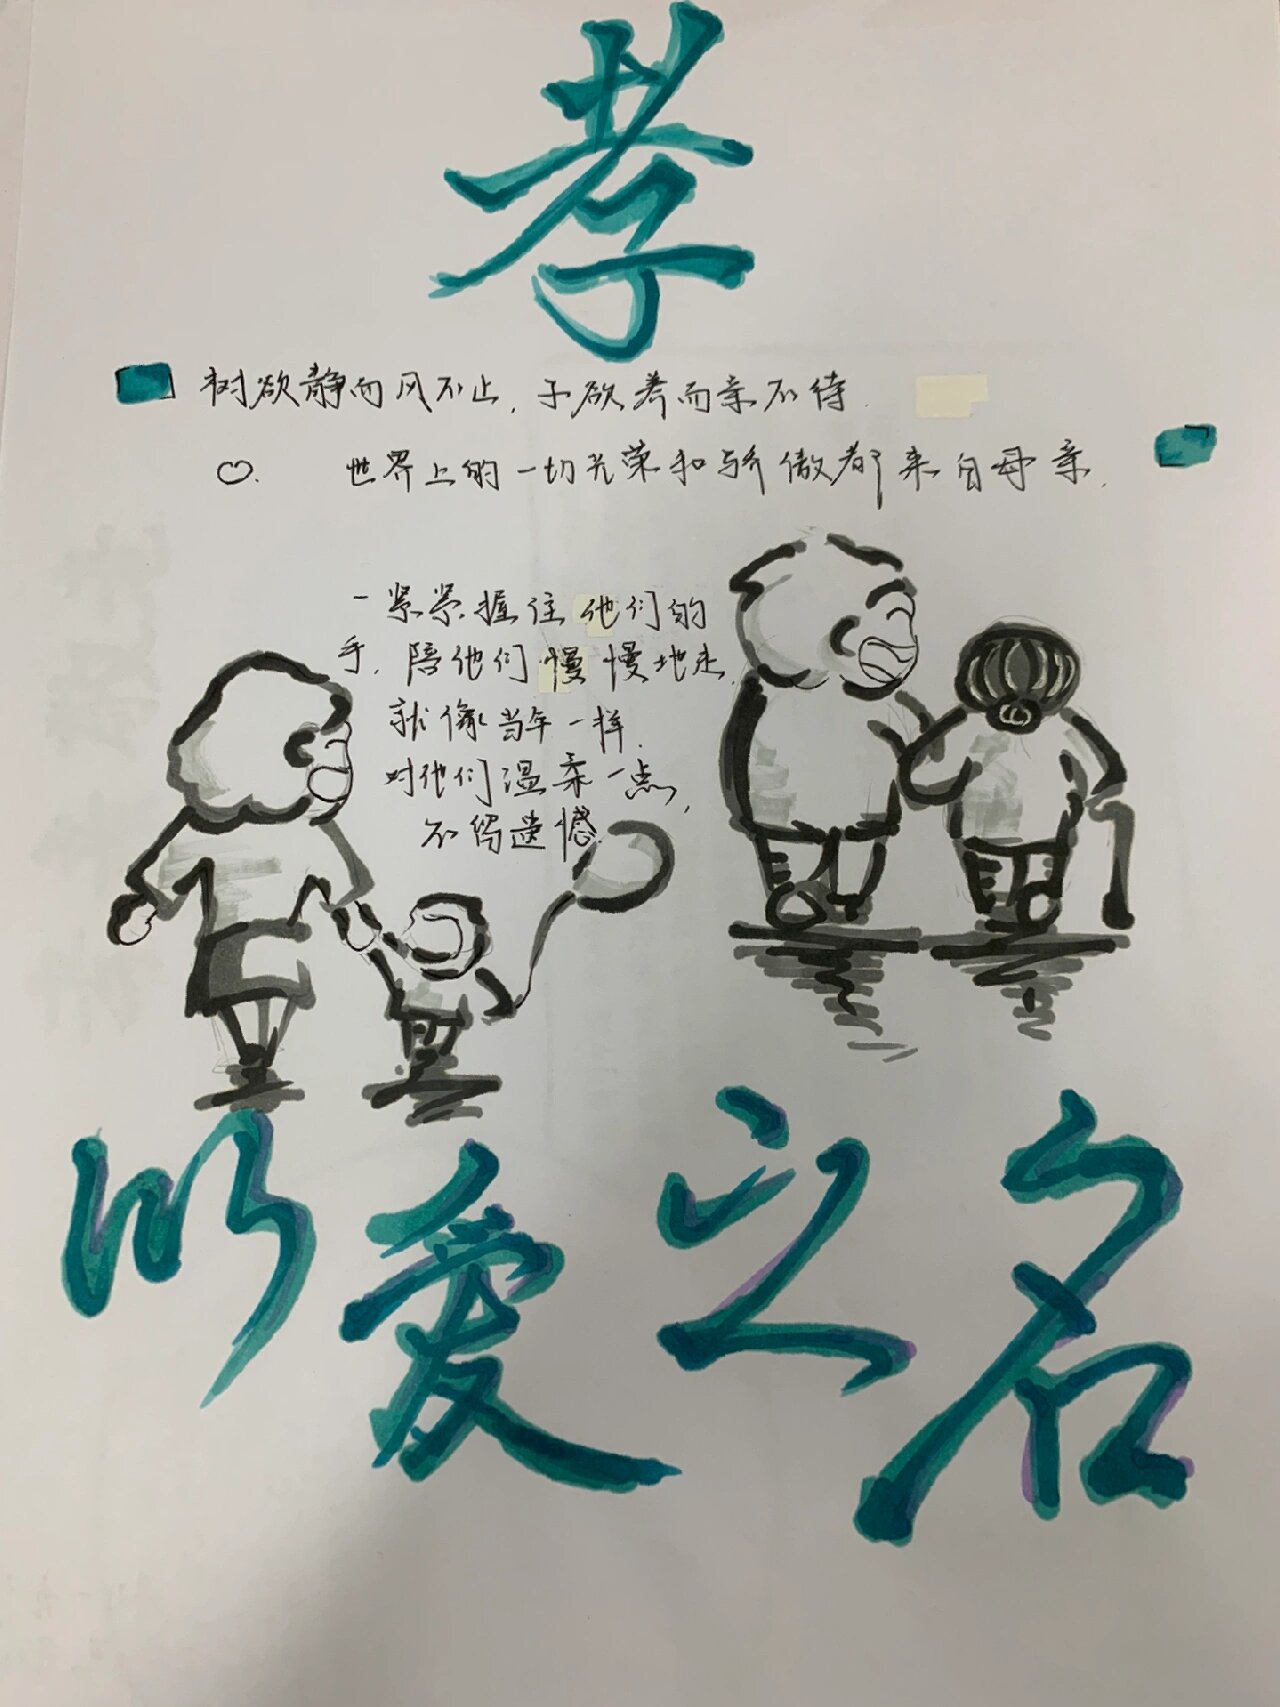 孝
树欲静而风不止,子欲养而亲不待
世界上的一切光荣和骄傲都来自母亲.
一紧紧握住他们的
手.陪他们慢慢地走,
就像当年一样.
对他们温柔一点,
不留遗憾.
以爱之名